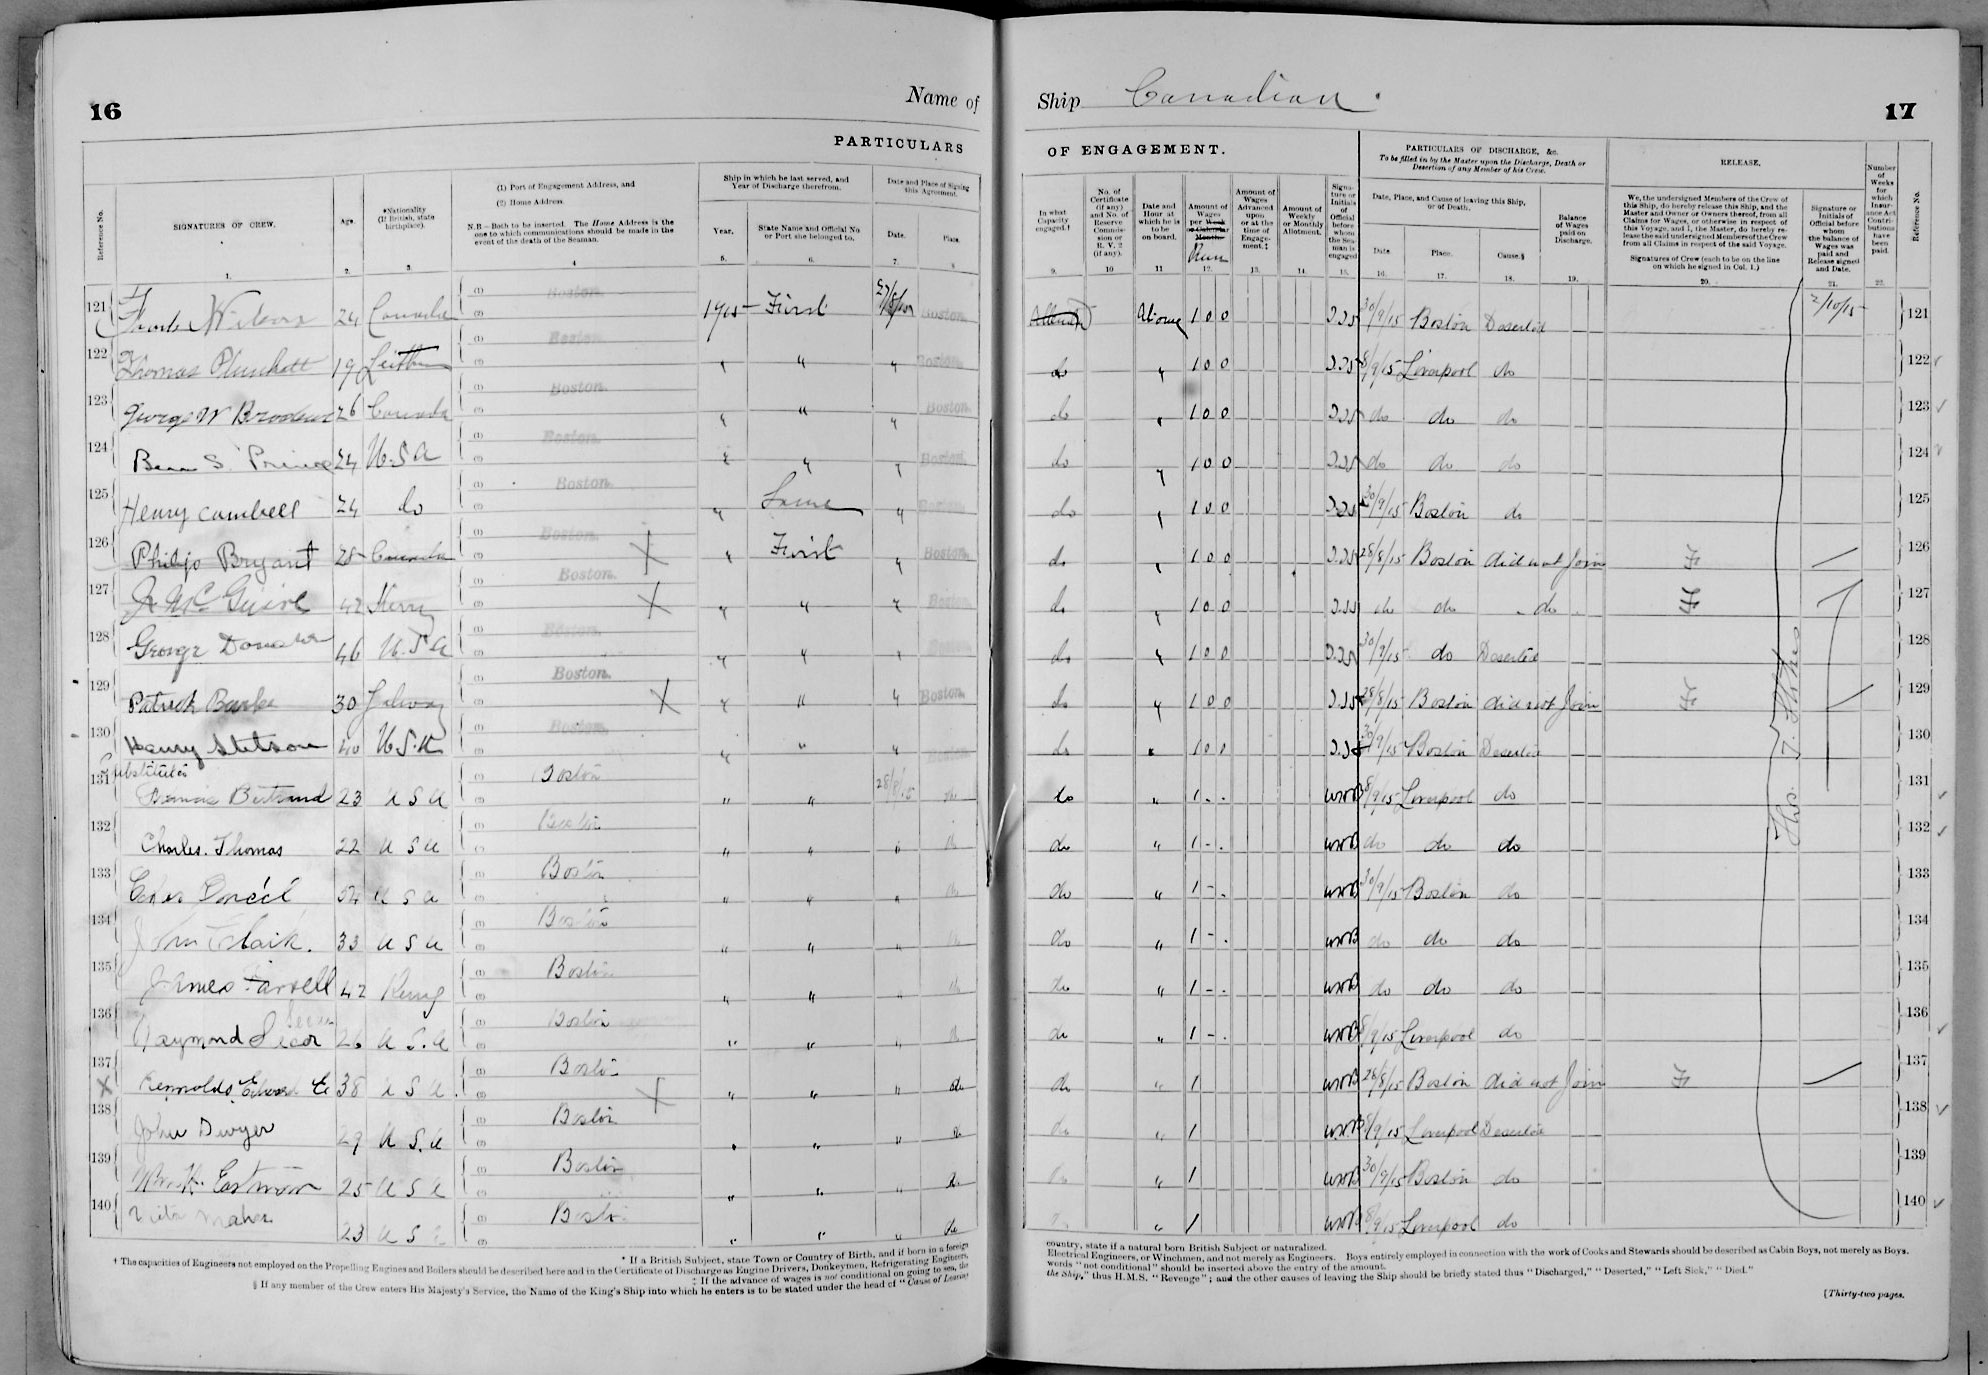 16
Name of
PARTICULARS
Reference No.
SIGNATURES OF CREW.
Age.
*Nationality (If British, state birthplace).
(1) Port of Engagement Address, and
(2) Home Address.
N.B – Both to be inserted. The Home Address is the one to which communications should be made in the event of the death of the Seaman.
Ship in which he last served, and Year of Discharge therefrom.
Year.
State Name and Official No or Port she belonged to.
Date and Place of Signing this Agreement.
Date.
Place.
1. 2. 3. 4 5. 6. 7. 8
121 Wilson 24 Canada (1) Boston. (2) 1915 First Boston.
122 Thomas Plunkett 19 Leith (1) Boston. (2) " " " Boston.
123 George W 26 Canada (1) Boston. (2) " " " Boston.
124 S. Prince 24 U.S.A (1) Boston. (2) " " " Boston.
125 Henry Cambell 24 do (1) Boston. (2) " Same " Boston.
126 Philip Bryant 28 Canada (1) Boston. (2) X " First " Boston.
127 Mc Guire 42 Kerry (1) Boston. (2) X " " " Boston.
128 George 46 U.S.A (1) Boston. (2) " " " Boston.
129 Patrick Burke 30 Galway (1) Boston. (2) X " " " Boston.
130 Henry Stetson 40 U.S.A (1) Boston. (2) " " " Boston.
Substitutes
131 Bertrand 23 U S A (1) Boston (2) " " 28/8/15 do
132 Charles. Thomas 22 U S A (1) Boston (2) " " " do
133 54 U S A (1) Boston (2) " " " do
134 John Clark. 33 U S A (1) Boston (2) " " "
135 James Farrell 42 Kerry (1) Boston (2) " " " do
136 Raymond Secor 26 U.S.A (1) Boston (2) " " " do
137 X Reynolds, Edward E 38 U S A. (1) Boston (2) X " " " do
138 John Dwyer 29 U S.A (1) Boston (2) " " " do
139 Eastman 25 U S A (1) Boston (2) " " " do
140 Maher 23 U S A (1) Boston (2) " " " do
* If a British Subject, state Town or Country of Birth, and if born in a foreign
† The capacities of Engineers not employed on the Propelling Engines and Boilers should be described here and in the Certificate of Discharge as Engine Drivers, Donkeymen, Refrigerating Engineers,
‡ If the advance of wages is not conditional on going to sea, the
§ If any member of the Crew enters His Majesty's Service, the Name of the King's Ship into which he enters is to be stated under the head of "Cause of Leaving
Ship Canadian.
17
OF ENGAGEMENT.
PARTICULARS OF DISCHARGE, &c.
To be filled in by the Master upon the Discharge, Death or Desertion of any Member of his Crew.
RELEASE.
In what Capacity engaged.†
No. of Certificate (if any) and No. of Reserve Commission or R. V. 2 (if any).
Date and Hour at which he is to be on board.
Amount of Wages per Week or Calendar Month. Run
Amount of Wages Advanced upon or at the time of Engagement.‡
Amount of Weekly or Monthly Allotment.
Signature or Initials of Official before whom the Seaman is engaged
Date, Place, and Cause of leaving this Ship, or of Death.
Date.
Place.
Cause.§
Balance of Wages paid on Discharge.
We, the undersigned Members of the Crew of this Ship, do hereby release this Ship, and the Master and Owner or Owners thereof, from all Claims for Wages, or otherwise in respect of this Voyage, and I, the Master, do hereby release the said undersigned Members of the Crew from all Claims in respect of the said Voyage.
Signatures of Crew (each to be on the line on which he signed in Col. 1.)
Signature or Initials of Official before whom the balance of Wages was paid and Release signed and Date.
Number of Weeks for which Insurance Act Contributions have been paid.
Reference No.
9. 10 11 12. 13. 14. 15. 16. 17. 18. 19. 20. 21. 22.
1 0 0 30/9/15 Boston Deserted 2/10/15 121
do " 1 0 0 8/9/15 Liverpool do 122
do " 1 0 0 do do do 123
do " 1 0 0 do do do 124
do " 1 0 0 30/9/15 Boston do 125
do " 1 0 0 28/8/15 Boston did not Join 126
do " 1 0 0 do do do 127
do " 1 0 0 30/9/15 do Deserted 128
do " 1 0 0 28/8/15 Boston did not Join 129
do " 1 0 0 30/9/15 Boston Deserted 130
do " 1 . . WWB 8/9/15 Liverpool do 131
do " 1 - . WWB do do do 132
do " 1 - . WWB 30/9/15 Boston do 133
do " 1 - . WWB do do do 134
do " 1 - . WWB do do do 135
do " 1 - . WWB 8/9/15 Liverpool do 136
do " 1 WWB 28/8/15 Boston did not Join 137
do " 1 WWB 8/9/15 Liverpool Deserted 138
do " 1 WWB 30/9/15 Boston do 139
do " 1 WWB 8/9/15 Liverpool do 140
country, state if a natural born British Subject or naturalized.
Electrical Engineers, or Winchmen, and not merely as Engineers. Boys entirely employed in connection with the work of Cooks and Stewards should be described as Cabin Boys, not merely as Boys.
words "not conditional" should be inserted above the entry of the amount.
the Ship," thus H.M.S. "Revenge"; and the other causes of leaving the Ship should be briefly stated thus "Discharged," "Deserted," "Left Sick," "Died."
[Thirty-two pages.